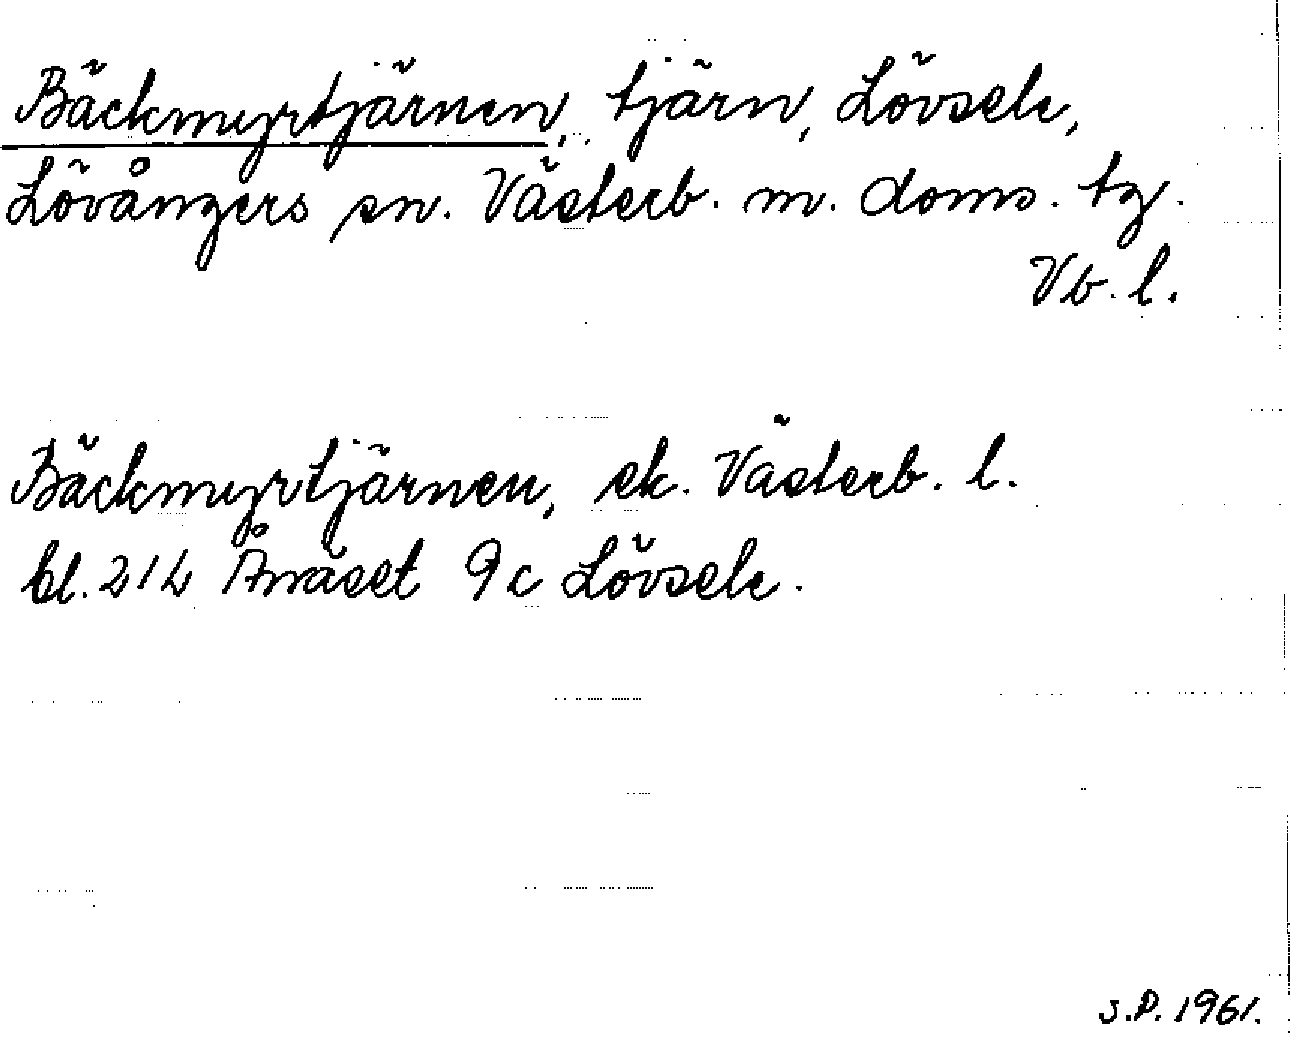 Bäckmyrtjärnen, tjärn, Lövsele,
Lövångers sn. Västerb. m. doms. tg.
Vb. l.
Bäckmyrtjärnen, ek. Västerb. l.
bl. 21L Ånäset 9c Lövsele.
J.P. 1961.